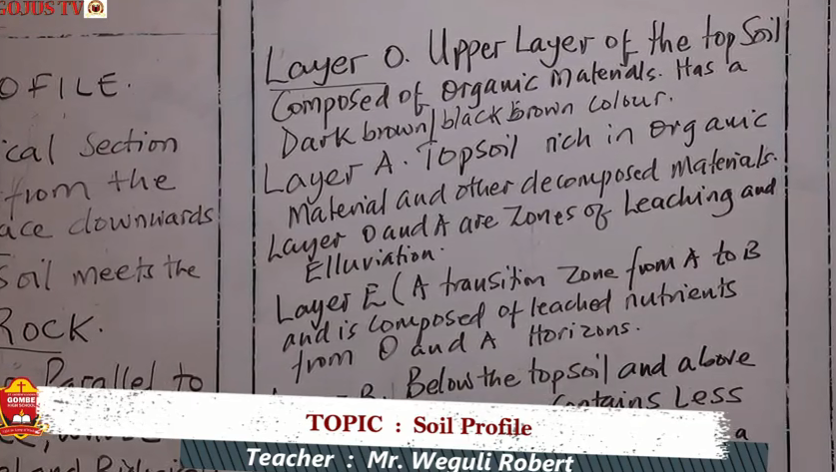 GOJUS TV
OFILE.
ical Section
from the
ace downwards
Soil meets the
ROCK.
Parallel to
Layer O. Upper Layer of the top Soil
Composed of Organic Materials. Has a
Dark brown/black brown colour.
Layer A. Topsoil rich in Organic
Material and other decomposed Materials.
Layer O and A are Zones of Leaching and
Elluviation.
Layer E (A transition Zone from A to B
and is composed of leached nutrients
from O and A Horizons.
B. Below the topsoil and above
Contains Less
a
GOMBE
HIGH SCHOOL
TOPIC : Soil Profile
Teacher : Mr. Weguli Robert